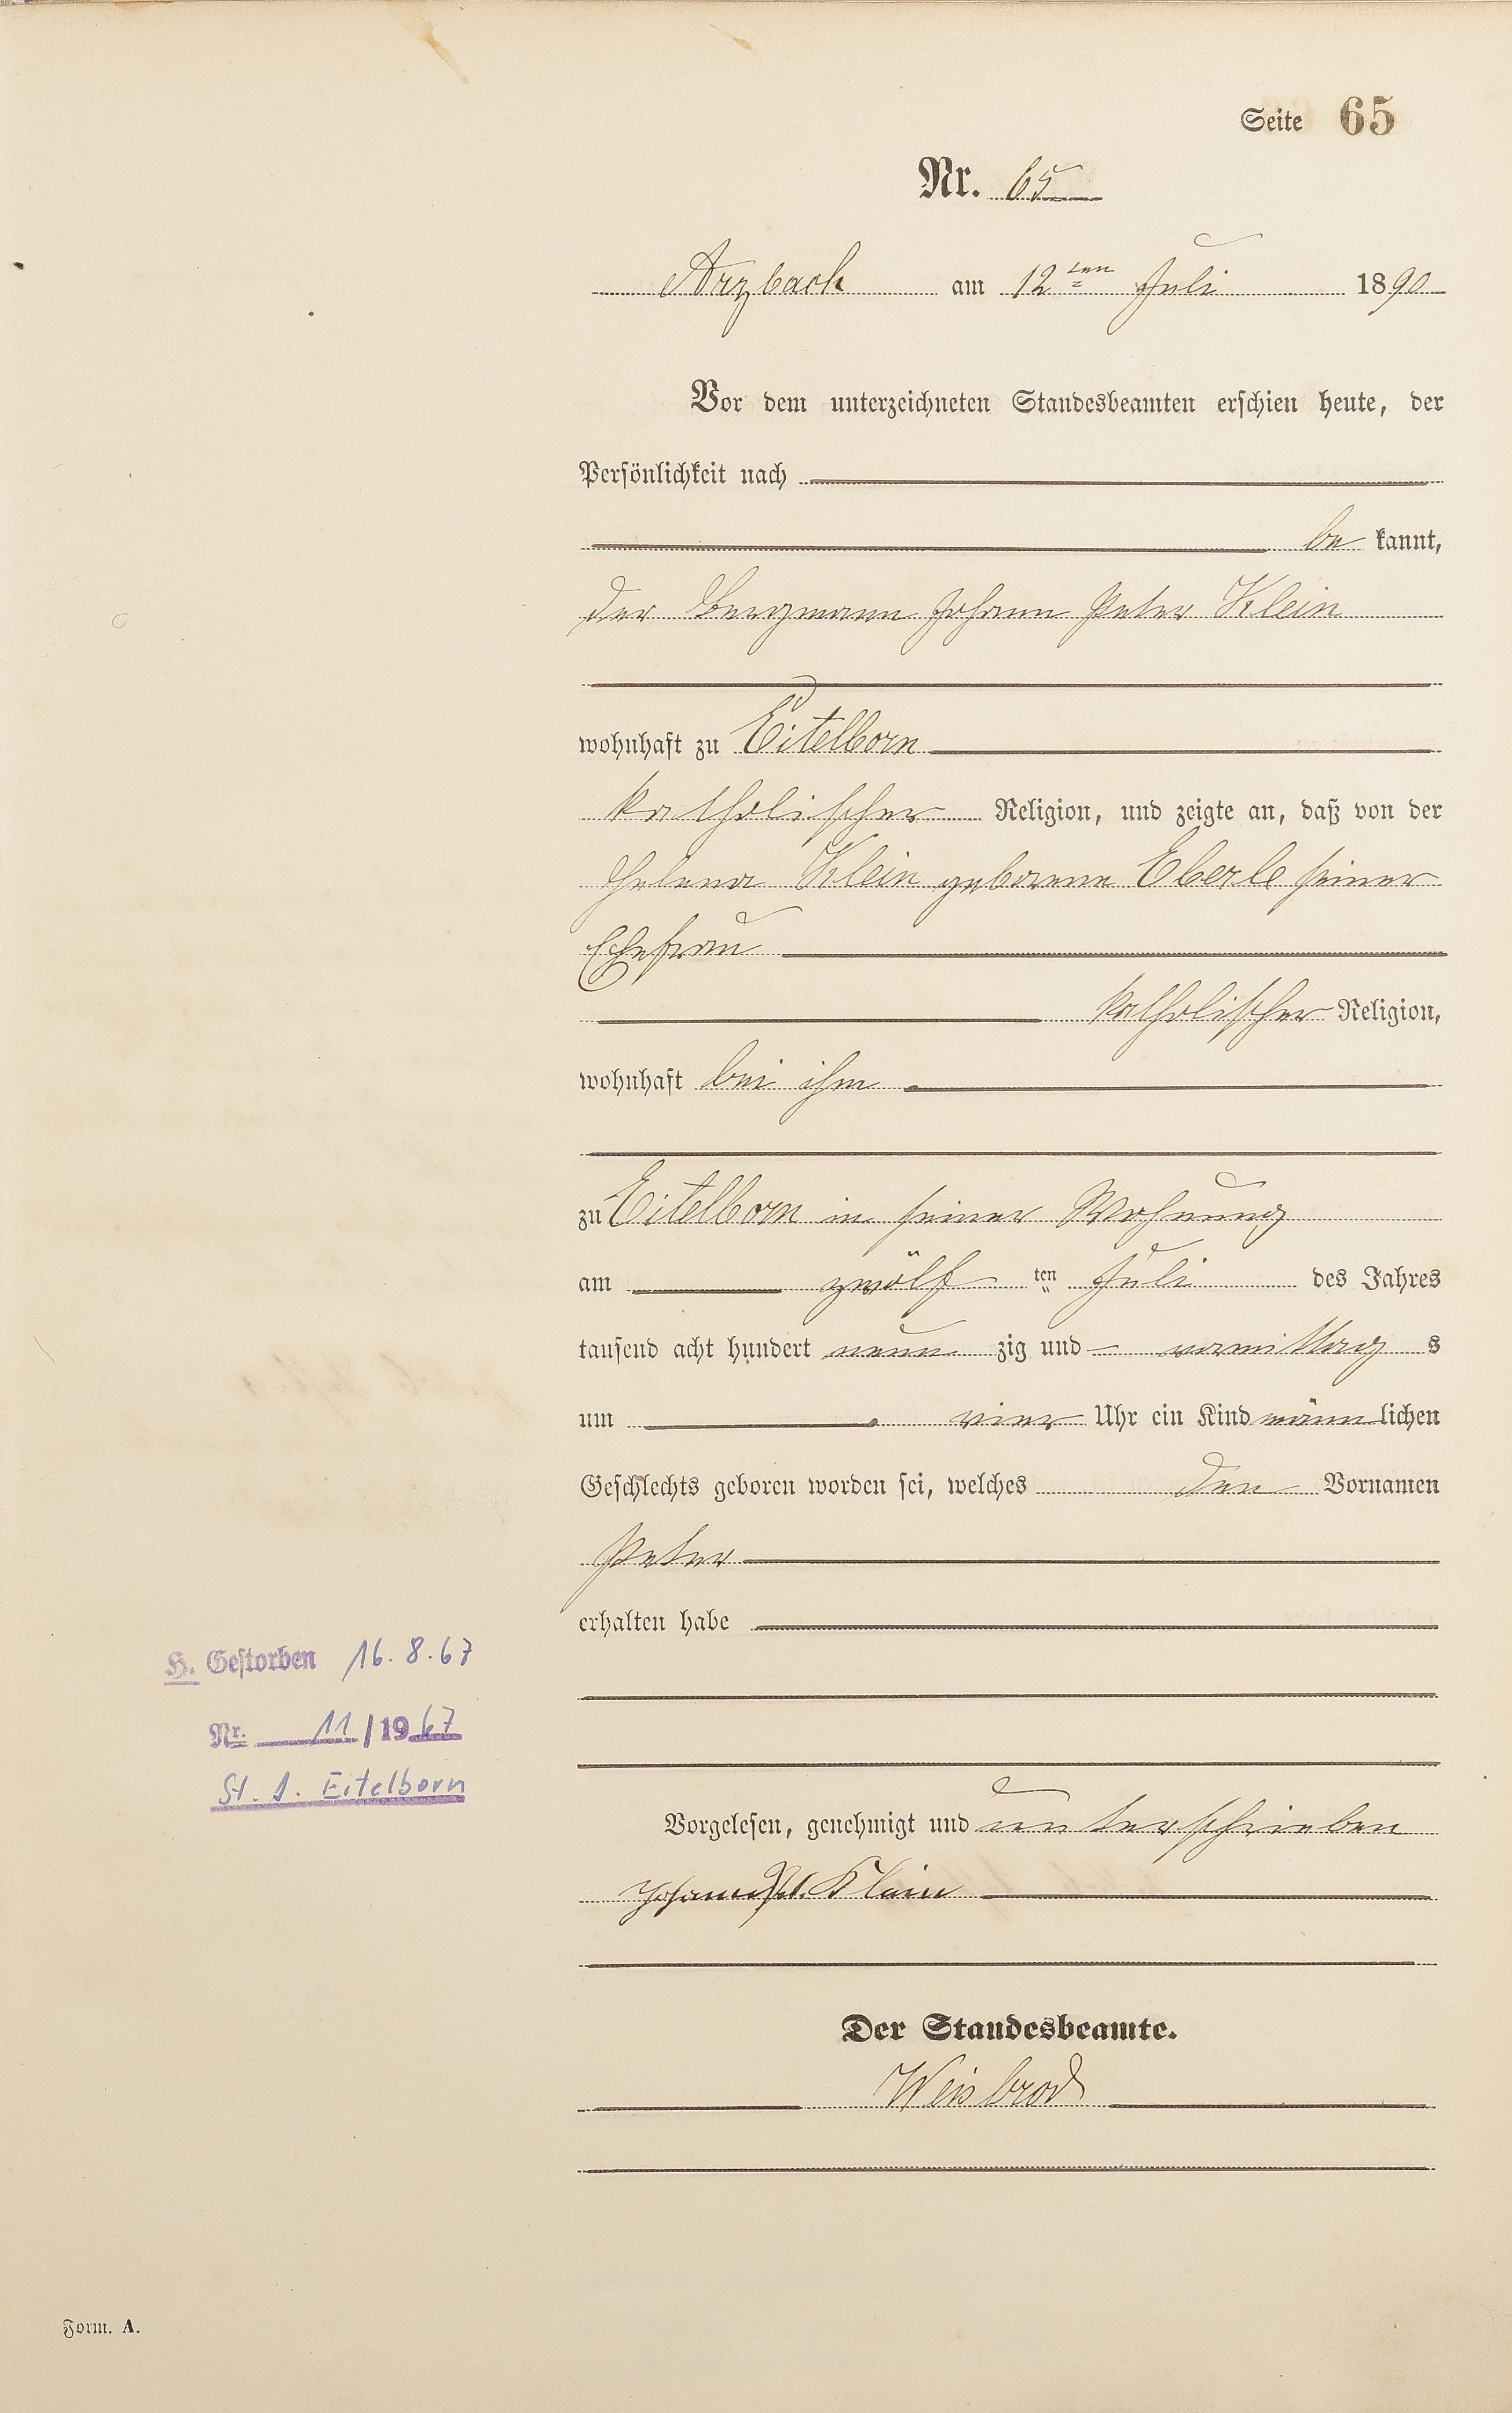 Seite 65
Nr. 65
Arzbach am 12ten Juli 1890
Vor dem unterzeichneten Standesbeamten erschien heute, der
Persönlichkeit nach
be kannt,
der Bergmann Johann Peter Klein
wohnhaft zu Eitelborn
katholischer Religion, und zeigte an, daß von der
Helena Klein geborene Eberle seiner
Ehefrau
katholischer Religion,
wohnhaft bei ihm
zu Eitelborn in seiner Wohnung
am zwölf ten Juli des Jahres
tausend acht hundert neun zig und vormittag s
um vier Uhr ein Kind männ lichen
Geschlechts geboren worden sei, welches den Vornamen
Peter
erhalten habe
H. Gestorben 16.8.67
Nr. 11/1967
St. A. Eitelborn
Vorgelesen, genehmigt und unterschrieben
Johann Pet. Klein
Der Standesbeamte.
Weisbrod
Form. A.